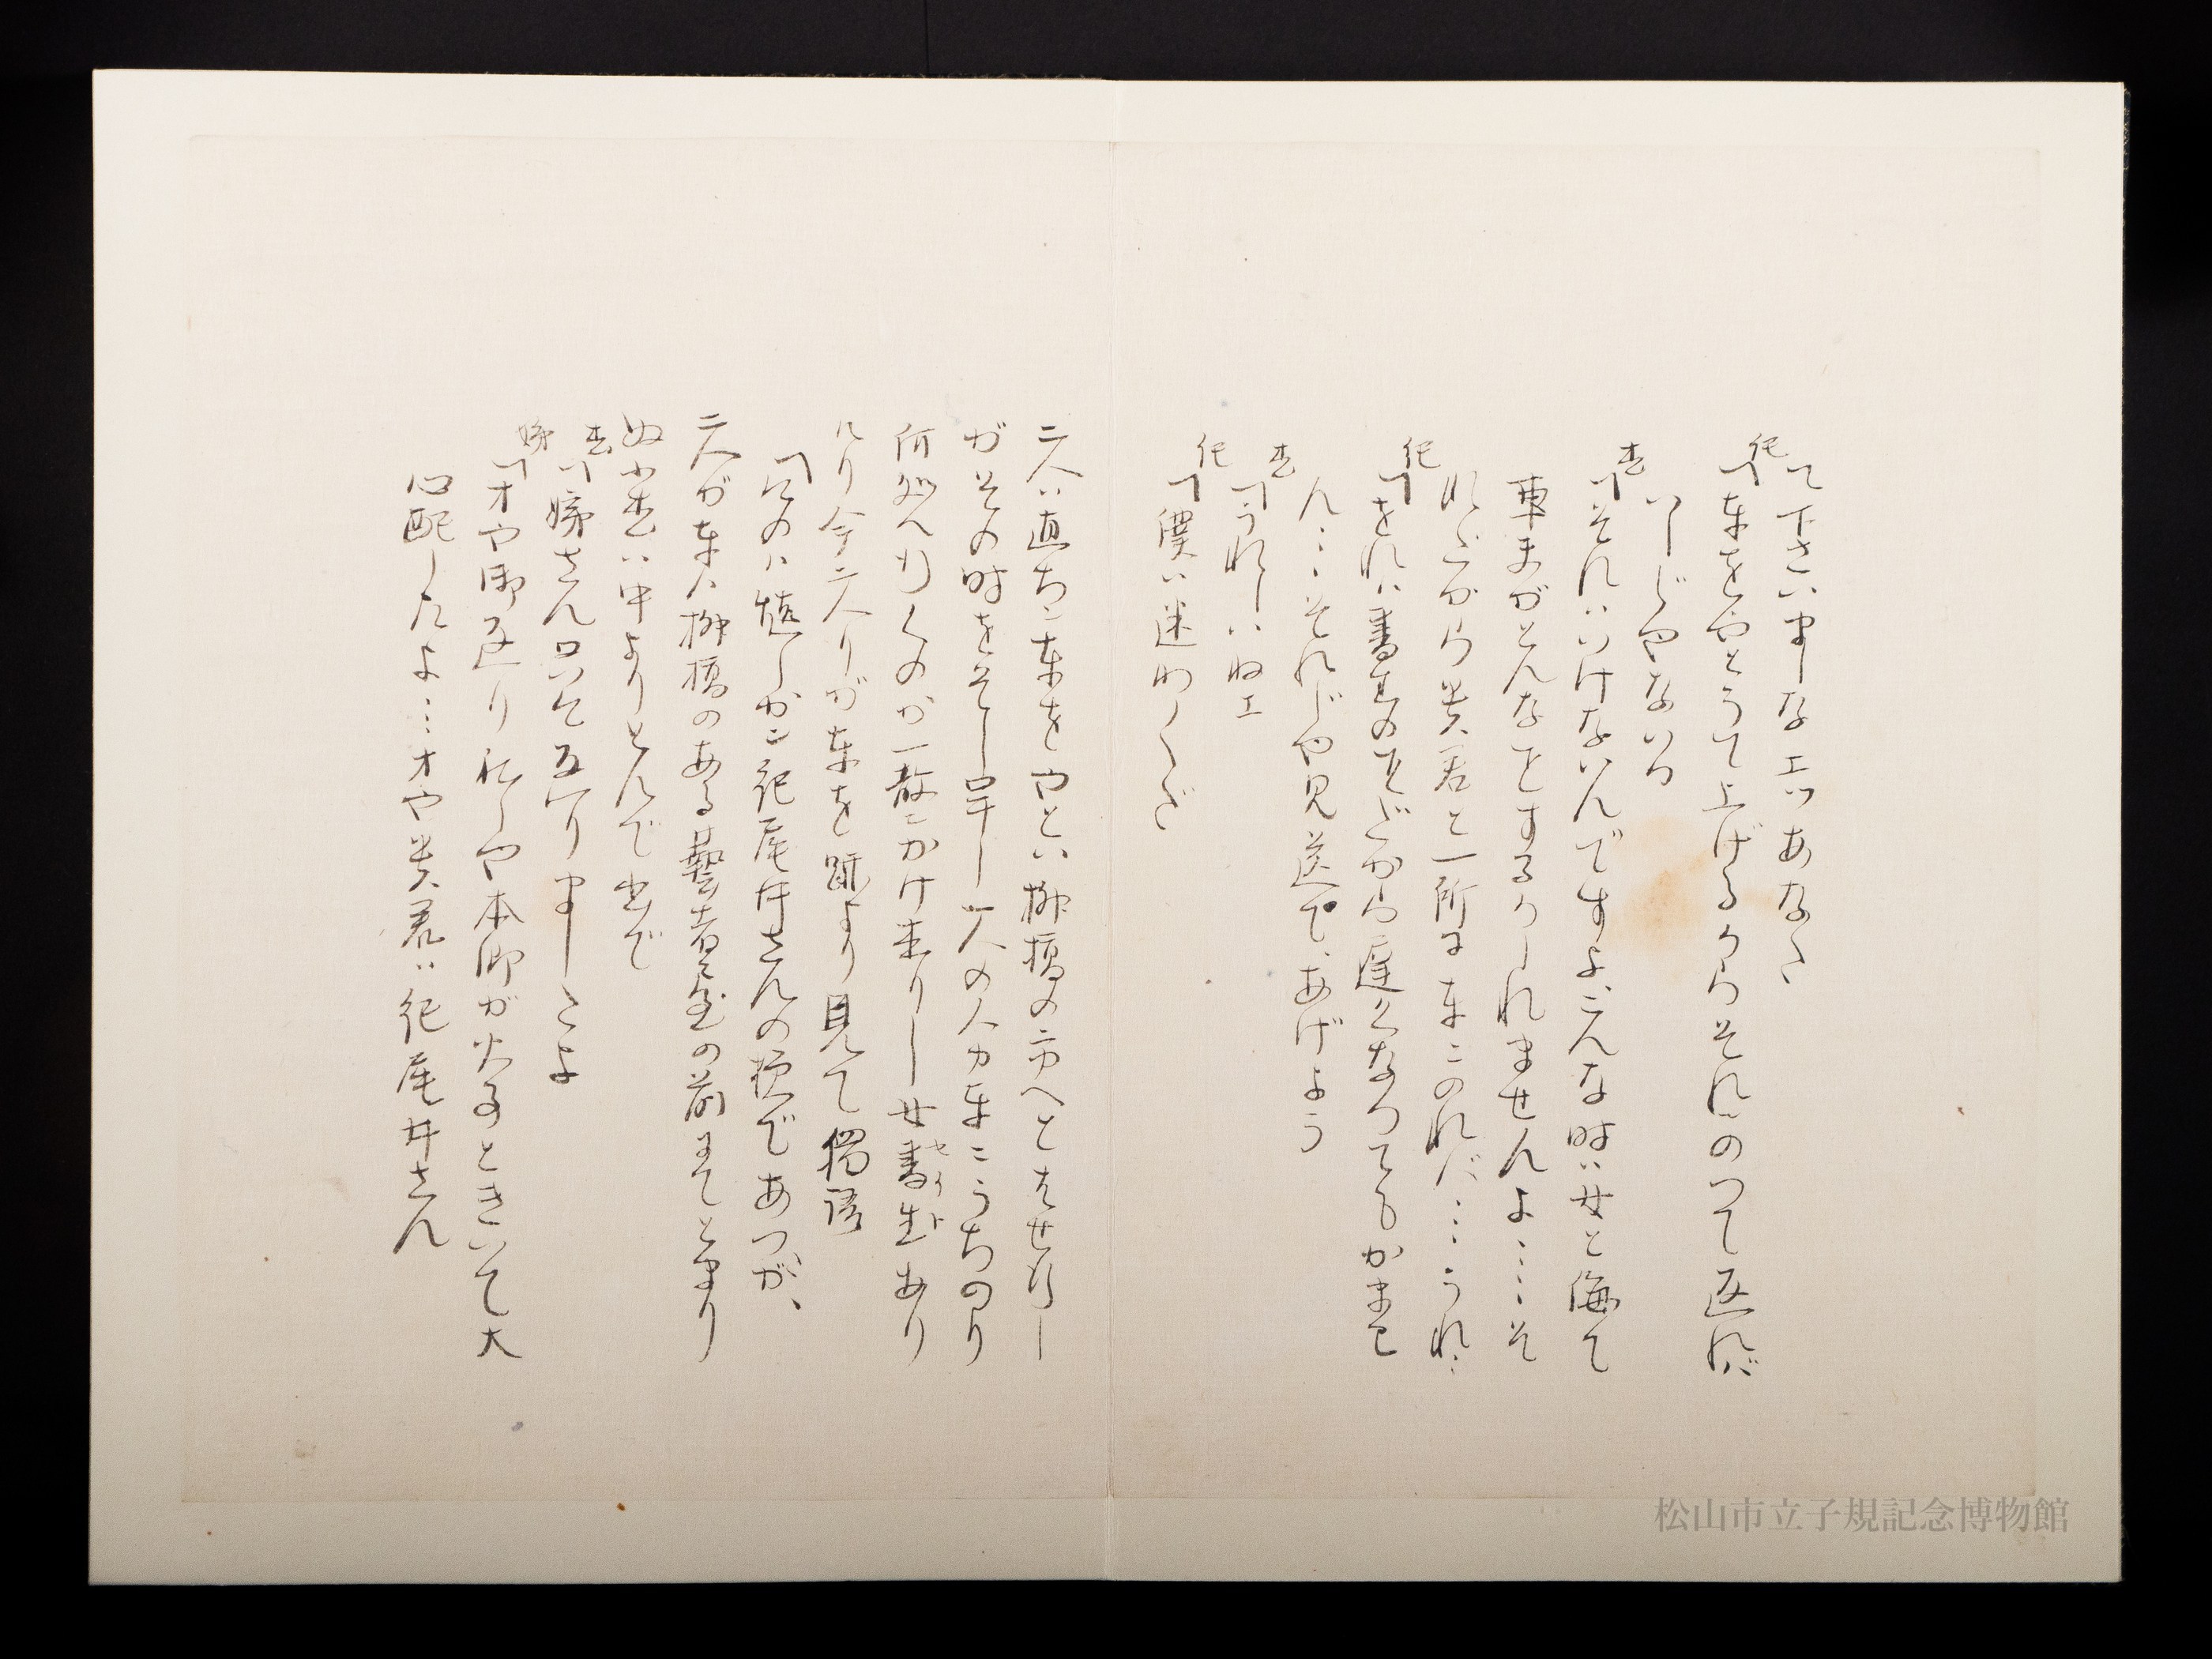 て下さいましなエツあなた
紀「車をやとうて上げるからそれにのつて返れば
いーじやないか
圭「それはいけないんですよ、こんな時は女と侮て
車夫がどんなことするかしれませんよ……そ
れだから貴君と一所に車にのれば……うれ
紀「それは書生のことだから遅くなつてもかまは
ん……それじや見送て、あげよう
圭「うれしいねエ
紀「僕は迷わくだ
二人は直ちに車をやとい柳橋の方へとはせ行し
がその時をそし早し一人の人力車にうちのり
何処へ行くのか一散にかけ来りし女書生あり
けり今二人りが車を跡より見て独語
二人が車は柳橋のある藝者屋の前まてとまり
ぬ小圭は中よりとんで出で
圭「姉さん只今返りましたよ
姉「オや御返りわしや本郷が火事ときいて大
心配したよ…オや貴君は紀尾井さん
松山市立子規記念博物館